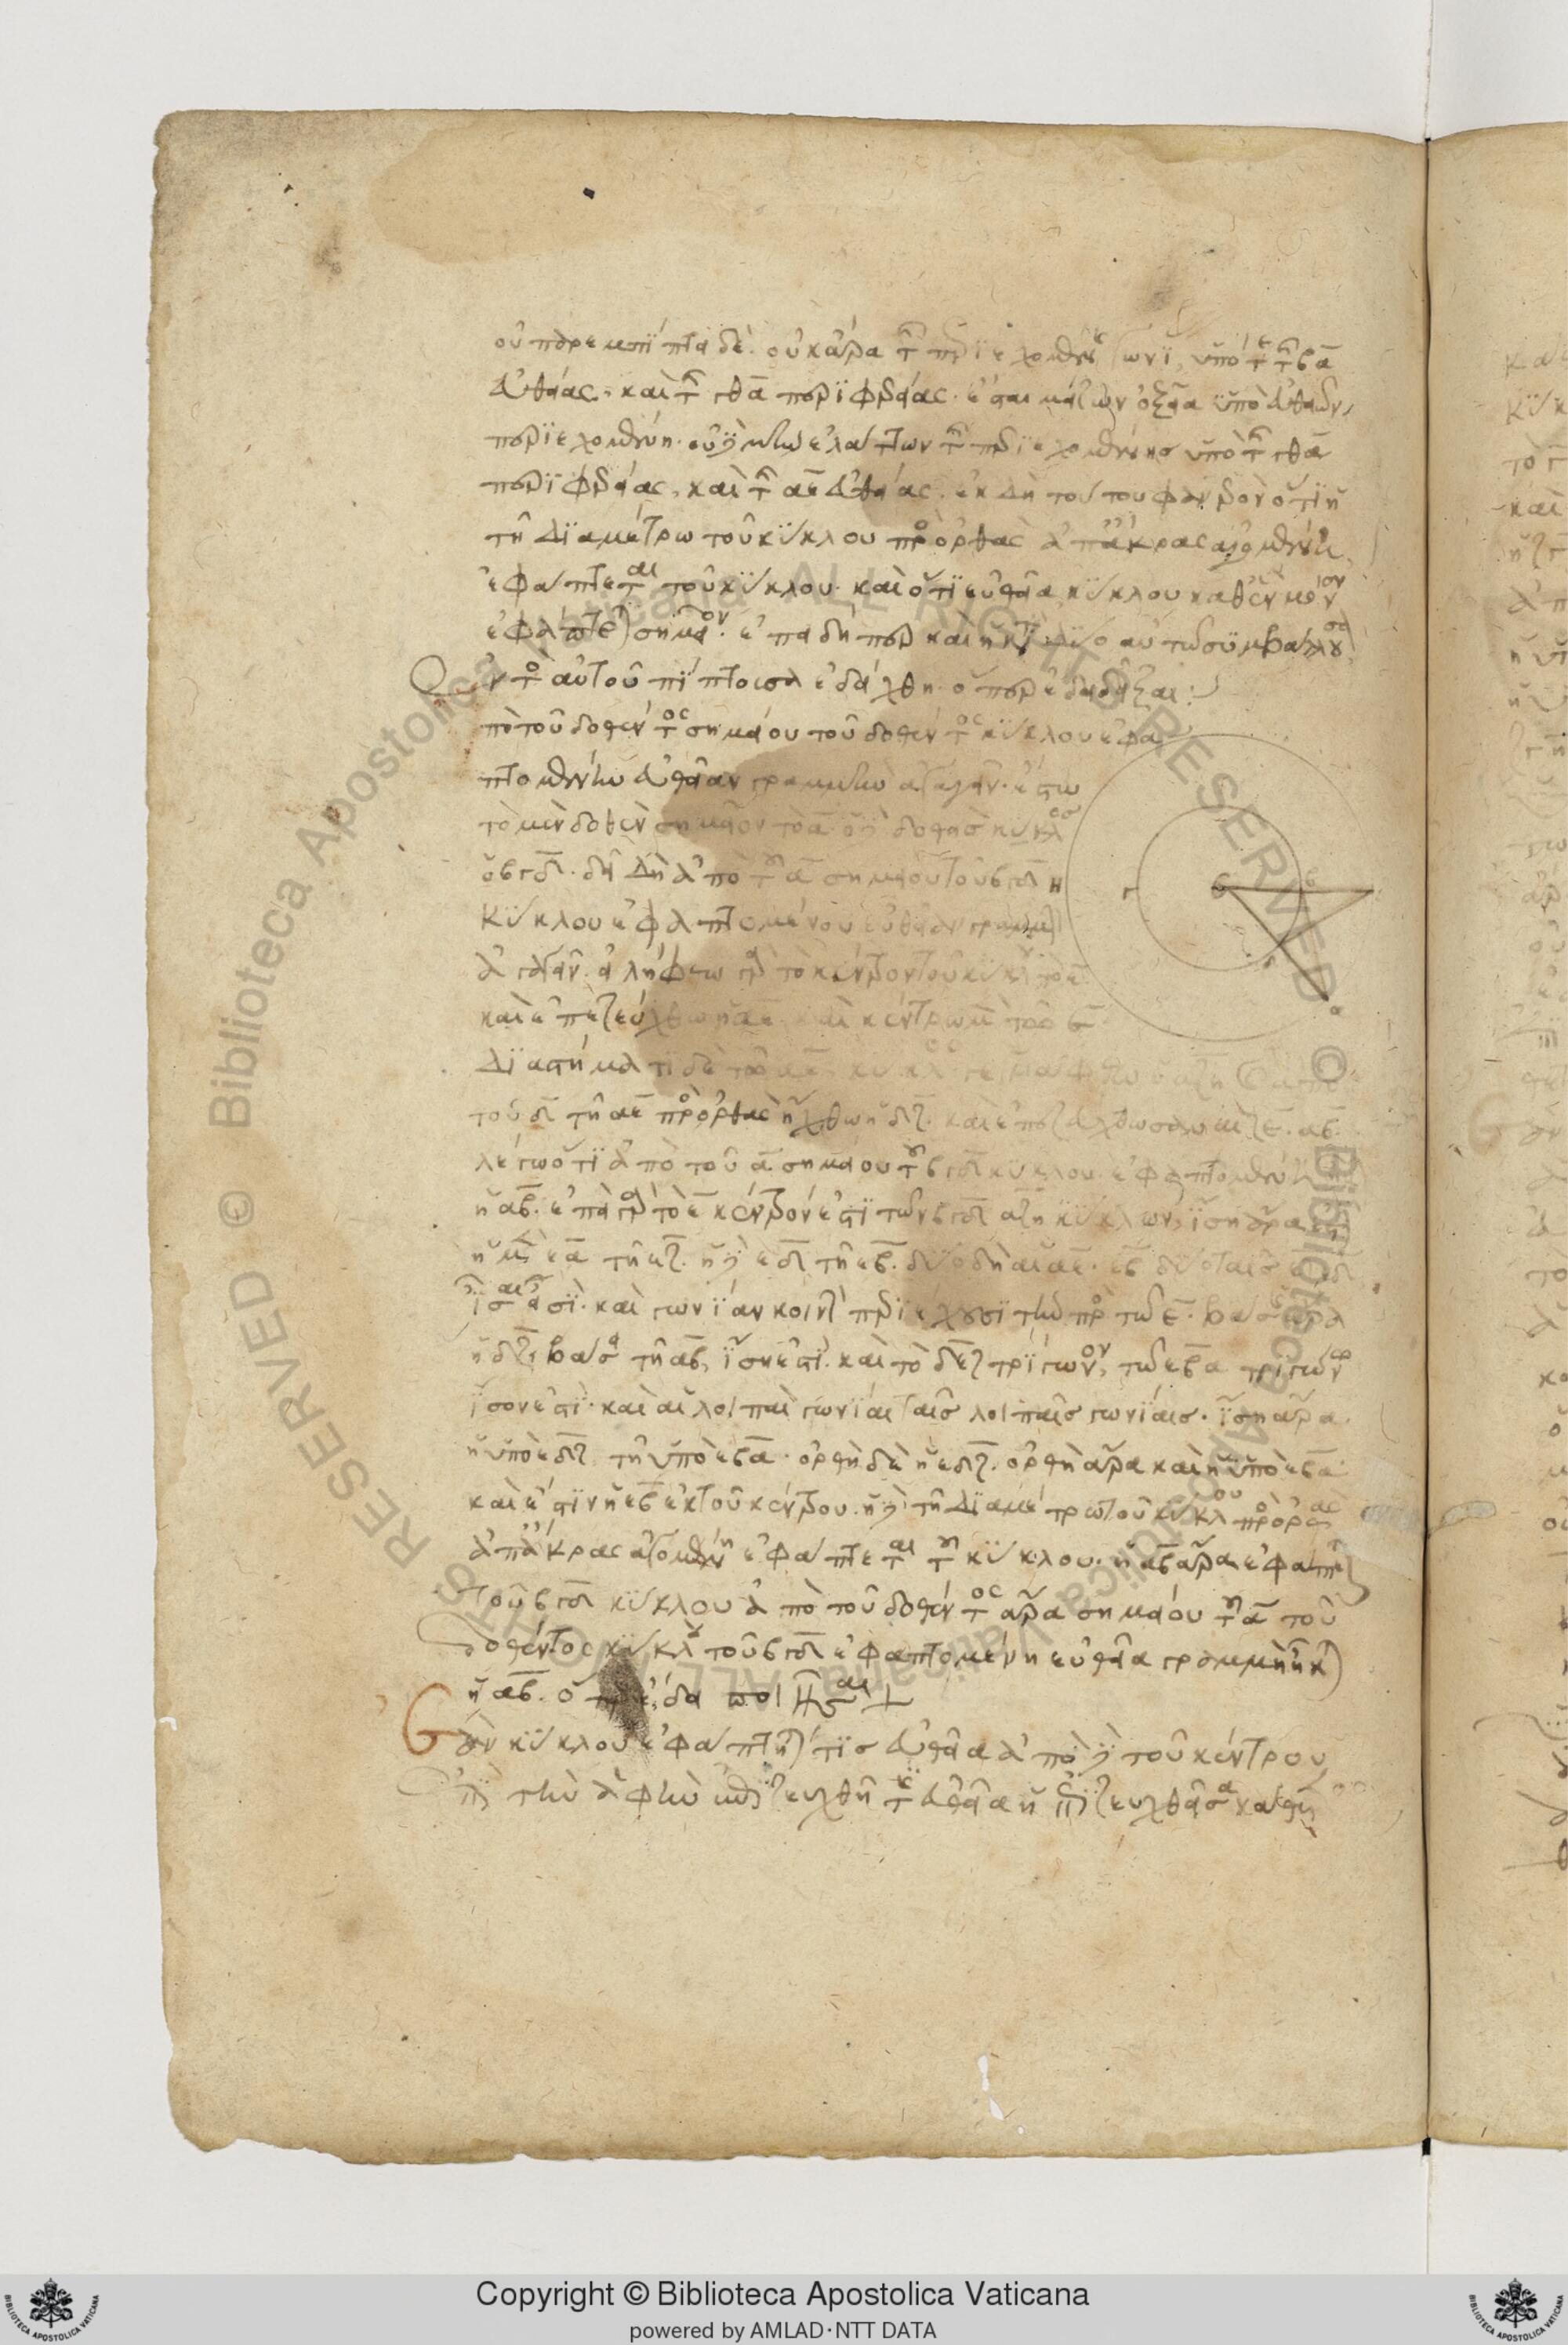 οὐ παρεμπίπτει δέ. οὐκ ἄρα τῆς περιεχομένης γωνί, ὑπό τε τῆς βα
εὐθείας, καὶ τῆς γθα περιφερείας. ἔσται μείζων ὀξεῖα ὑπὸ εὐθειῶν,
περιεχομένη. οὐδὲ μὴν ἐλάττων τῆς περιεχομένης ὑπὸ τῆς γθα
περιφερείας, καὶ τῆς αε εὐθείας. ἐκ δὴ τούτου φανερὸν ὅτι ἡ
τῆ διαμέτρω τοῦ κύκλου πρὸς ὀρθὰς ἀπ' ἄκρας ἀγομένη
ἐφάπτεται τοῦ κύκλου. καὶ ὅτι εὐθεῖα κύκλου καθ' ἓν μόνον
ἐφάπτεται σημεῖον. ἐπειδήπερ καὶ ἡ κατὰ δύο αὐτῶ συμβάλλουσα
ἐντὸς αὐτοῦ πίπτουσα ἐδείχθη. ὅπερ ἔδει δεῖξαι:
πὸ τοῦ δοθέντος σημείου τοῦ δοθέντος κύκλου ἐφα
πτομένην εὐθεῖαν γραμμὴν ἀγαγεῖν. ἔστω
τὸ μὲν δοθὲν σημεῖον τὸ α. ὁ δὲ δοθεὶς κύκλος
ὁ βγδ. δεῖ δὴ ἀπὸ τοῦ α σημείου τοῦ βγδ
κύκλου ἐφαπτομένου εὐθεῖαν γραμμ
ἀγαγεῖν. εἰλήφθω γὰρ τὸ κέντρον τοῦ κύκλ τὸ ε
καὶ ἐπεζεύχθω ἡ αε καὶ κέντρω μὲν τῶ ε
διαστήματι δὲ τῶ εα κύκλος
τοῦ δ τῆ αε πρὸς ὀρθὰς ἤχθω ἡ δζ. καὶ ἐπεζεύχθωσαν αἱ ζε. αβ.
λέγω ὅτι ἀπὸ τοῦ α σημείου τοῦ βγδ κύκλου ἐφαπτομένη
ἡ αβ. ἐπεὶ γὰρ τὸ ε κέντρον ἐστὶ τῶν βγδ αζη κύκλων, ἴση ἄρα ἐστὶν
ἡ μὲν εα τῆ εζ. ἡ δὲ εδ τῆ εβ. δύο δὴ αἱ αε. εβ δυσὶ ταῖς
ἴσαι εἰσί. καὶ γωνίαν κοινὴν περιέχουσι τὴν πρὸς τῶ ε. βάσις ἄρα
ἡ δζ, βάσει τῆ αβ, ἴση ἐστί. καὶ τὸ δεζ τρίγωνον, τῶ εβα τριγώνω
ἴσον ἐστί. καὶ αἱ λοιπαὶ γωνίαι ταῖς λοιπαῖς γωνίαις. ἴση ἄρα.
ἡ ὑπὸ εδζ τῆ ὑπὸ εβα. ὀρθὴ δὲ ἡ εδζ. ὀρθὴ ἄρα καὶ ἡ ὑπὸ εβα
καὶ ἐστὶν ἡ εβ ἐκ τοῦ κέντρου. ἡ δὲ τῆ διαμέτρω τοῦ κύκλου πρὸς ὀρθὰς
ἀπ' ἄκρας ἀγομένη ἐφάπτεται τοῦ κύκλου. ἡ αβ ἄρα ἐφάπτεται
τοῦ βγδ κύκλου ἀπὸ τοῦ δοθέντος ἄρα σημείου τοῦ α τοῦ
δοθέντος κύκλου τοῦ βγδ ἐφαπτομένη εὐθεῖα γραμμὴ ἦκται
ἡ αβ. ὅπερ ἔδει ποιῆσαι
ἐὰν κύκλου ἐφάπτηταί τις εὐθεῖα ἀπὸ δὲ τοῦ κέντρου
ἐπὶ τὴν ἁφὴν ἐπιζευχθῆ τις εὐθεῖα ἡ ἐπιζευχθεῖσα κάθετ
Copyright © Biblioteca Apostolica Vaticana
powered by AMLAD·NTT DATA